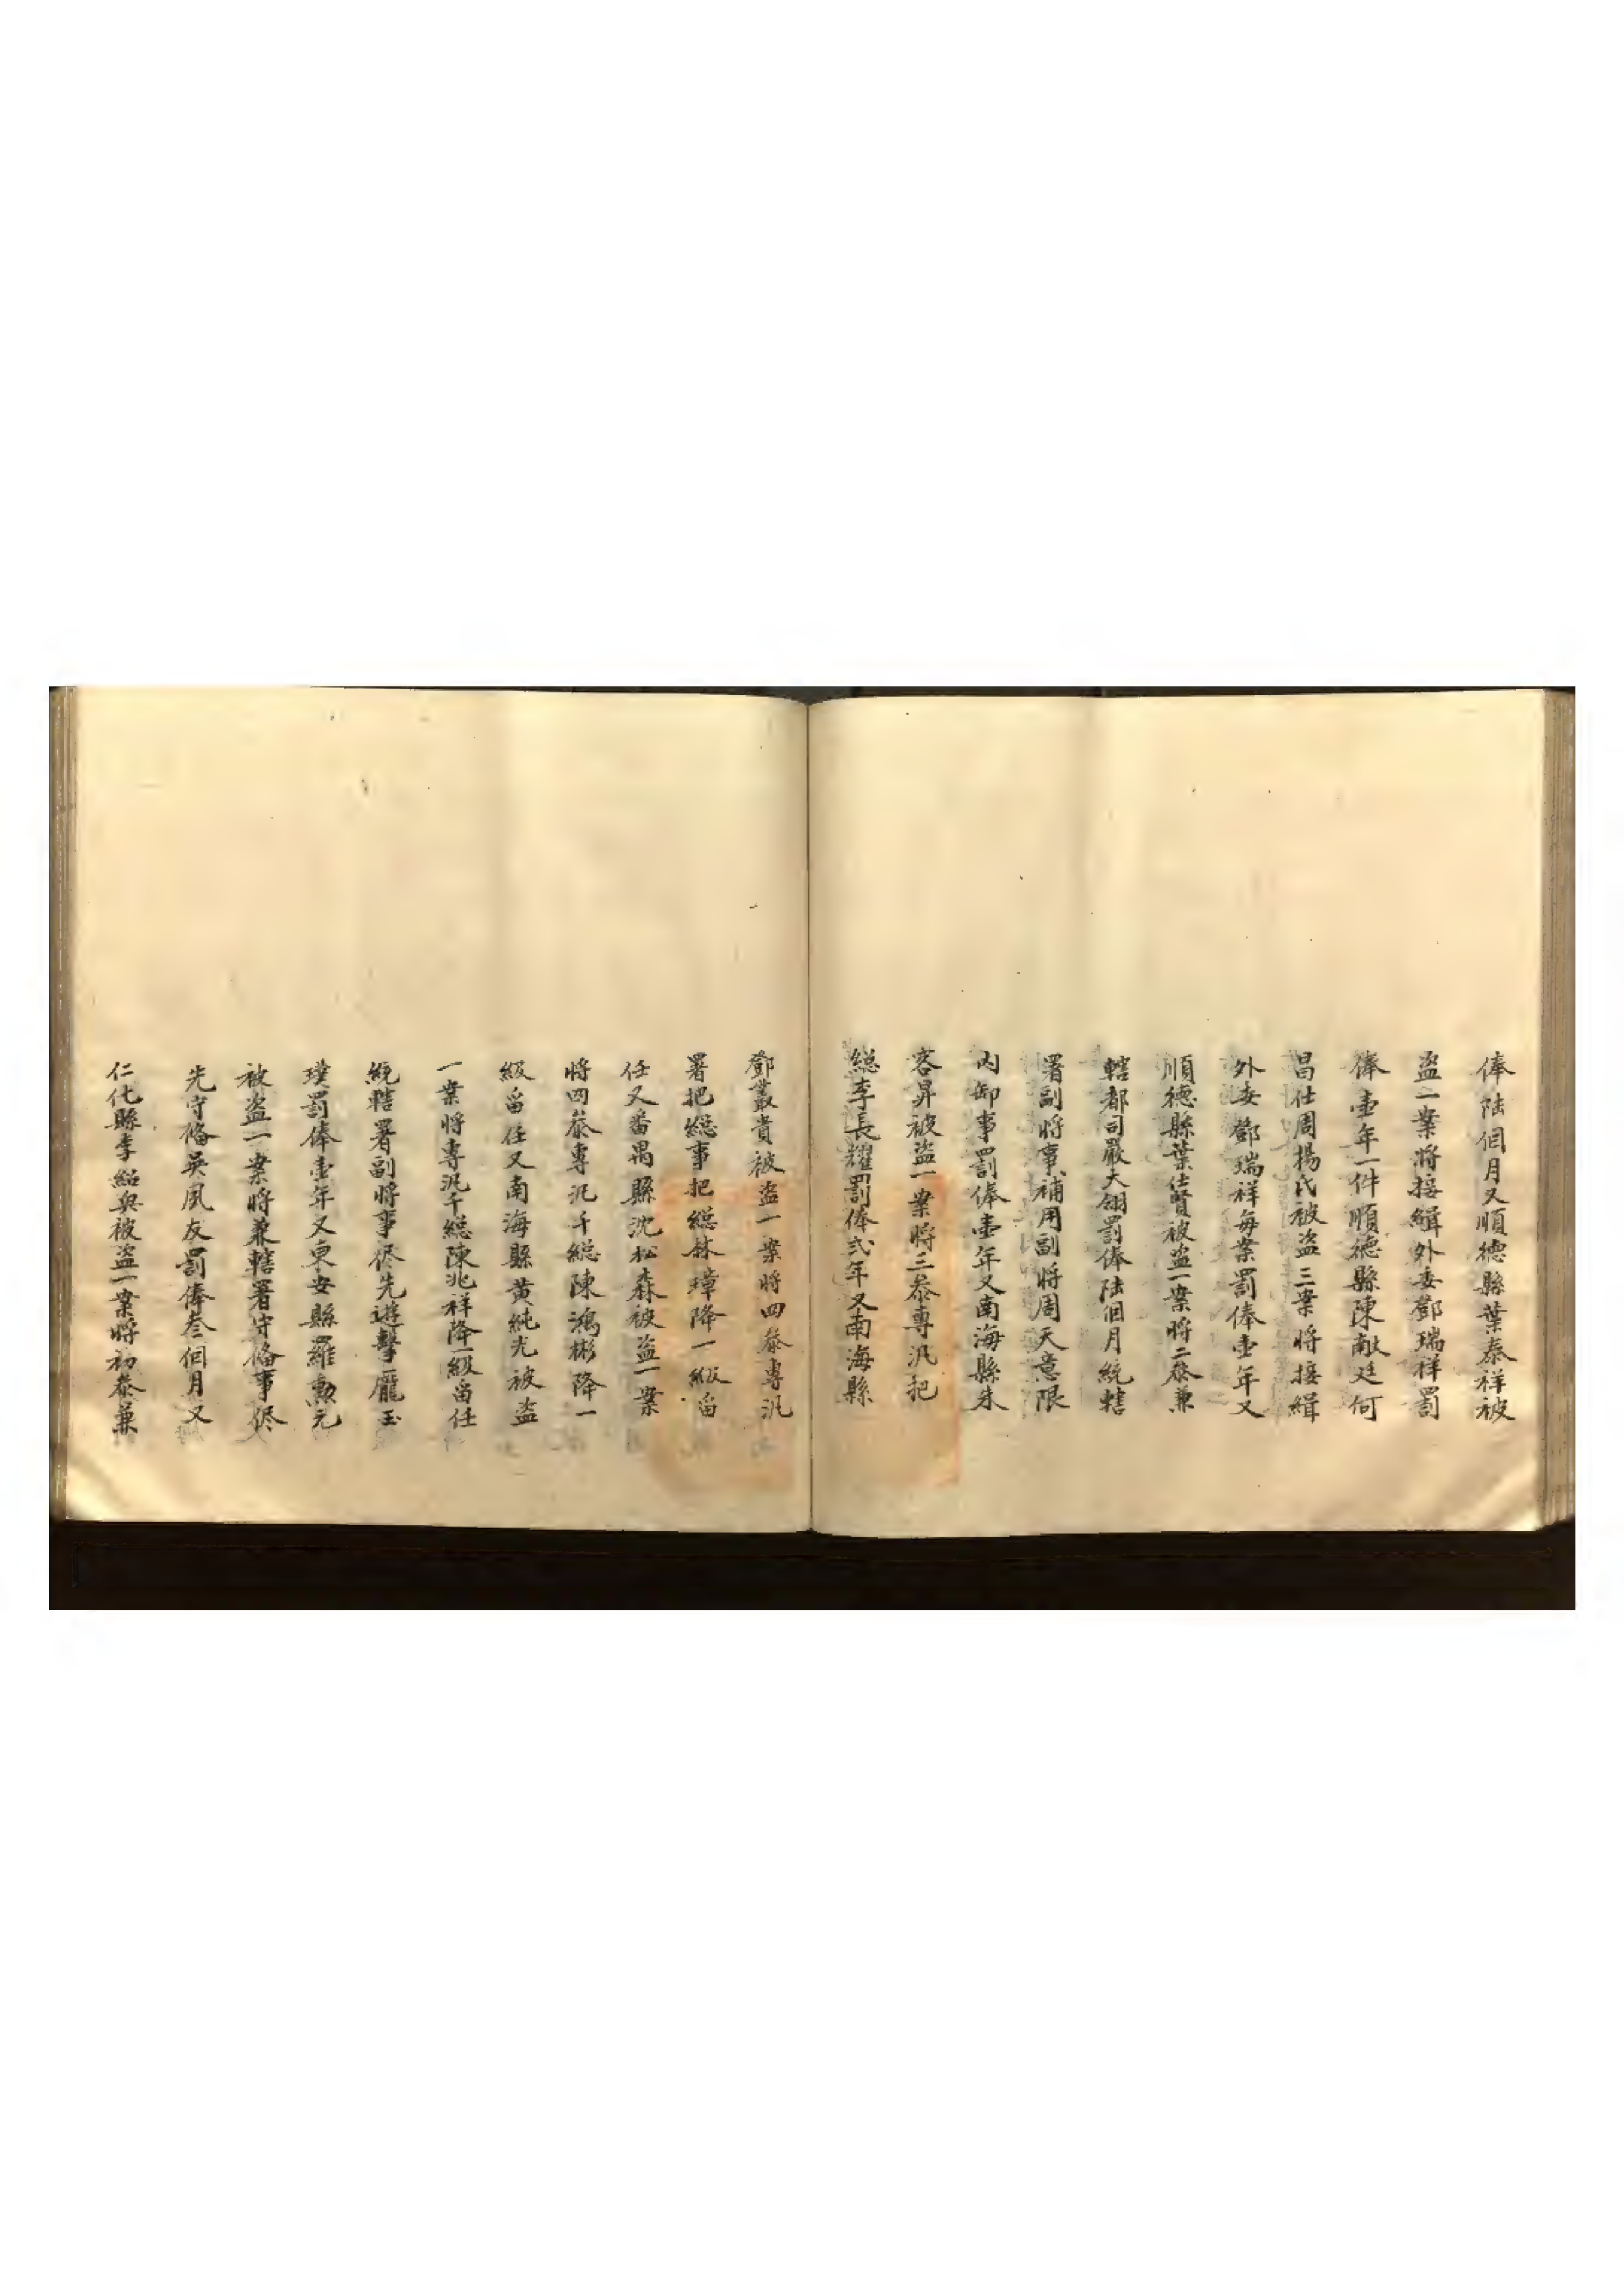 俸陸個月又順德縣葉泰祥被
盜一案將接緝外委鄧瑞祥罰
俸壹年一件順德縣陳猷廷何
昌仕周揚氏被盜三案將接緝
外委鄧瑞祥每案罰俸壹年又
順德縣葉仕賢被盜一案將二叅兼
轄都司嚴大翎罰俸陸個月統轄
署副將事補用副將周天意限
內卸事罰俸壹年又南海縣朱
容昇被盜一案將三叅專汛把
総李長耀罰俸弍年又南海縣
鄧叢貴被盜一案將四叅專汛
署把総事把総林璋降一級畱
任又番禺縣沈松森被盜一案
將四叅專汛千総陳鴻彬降一
級畱任又南海縣黃純光被盜
一案將專汛千総陳兆祥降一級畱任
統轄署副將事侭先遊擊龐玉
璞罰俸壹年又東安縣羅勲元
被盜一案將兼轄署守俻事侭
先守俻吳夙友罰俸叁個月又
仁化縣李紹與被盜一案將初叅兼